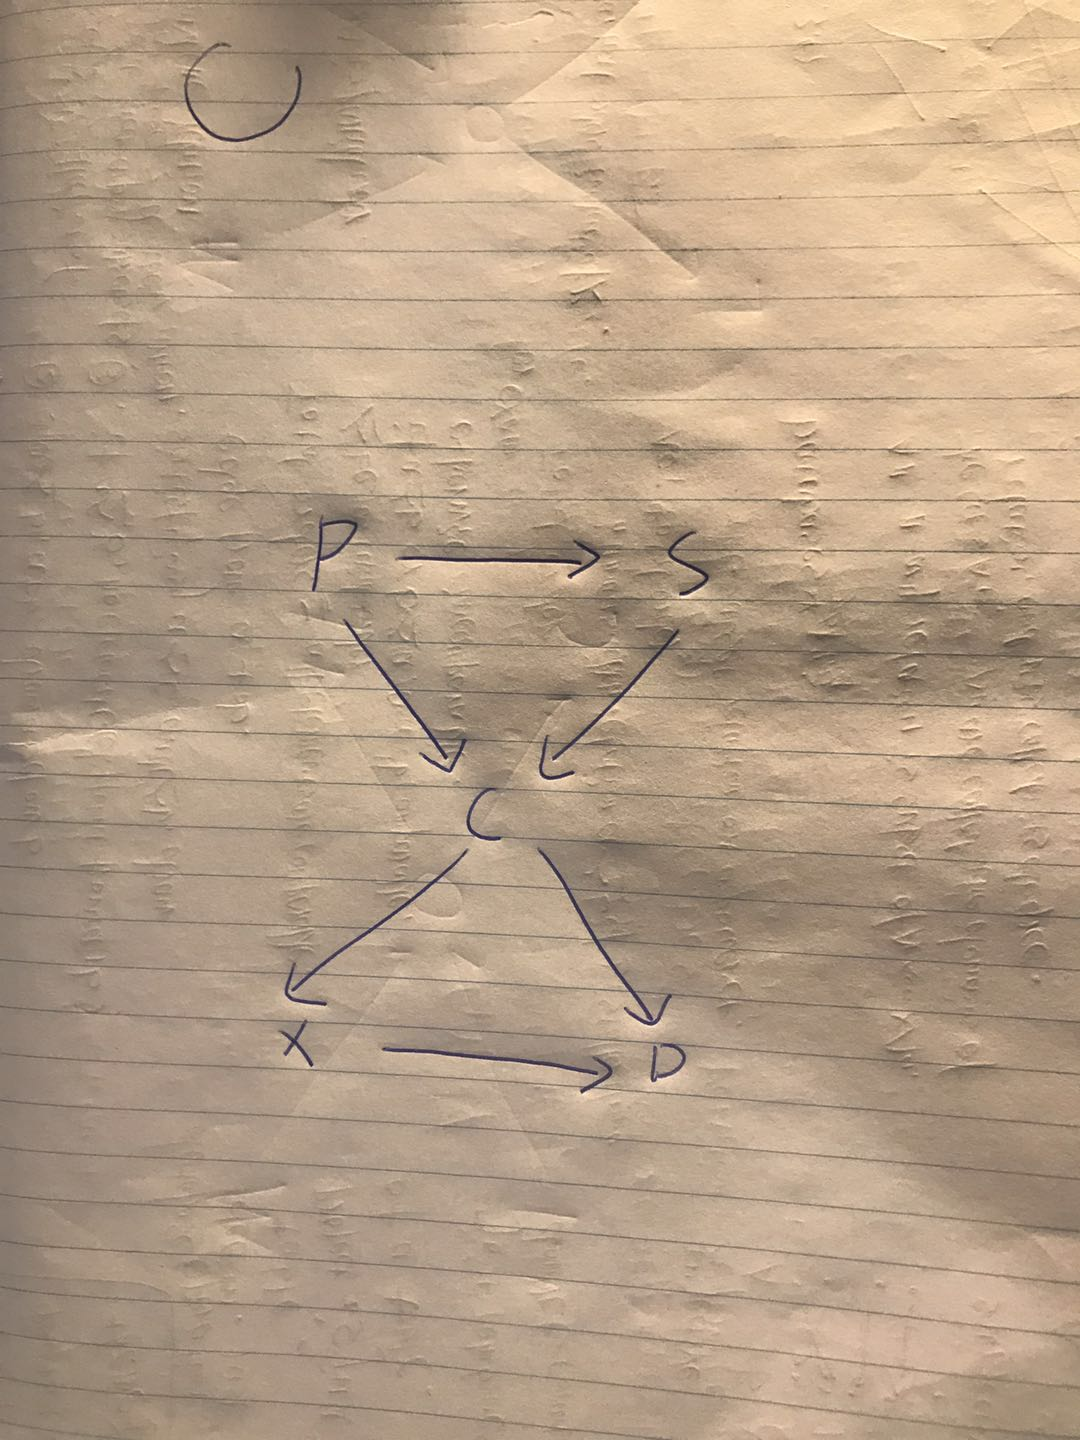 P → S
C
X → D